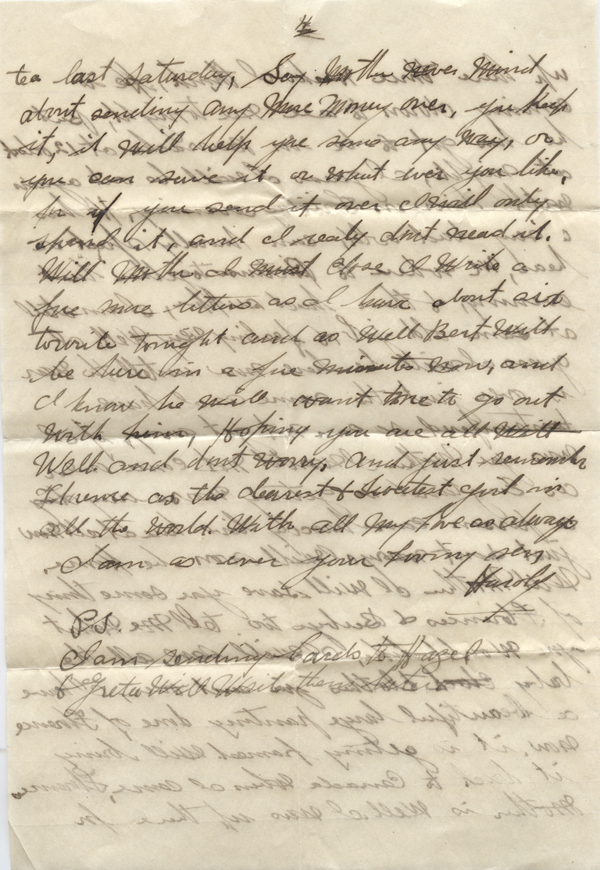 4
tea last Saturday, Say Mother never mind
about sending any more money over, you keep
it, it will help you some any way, or
you can save it or what ever you like,
for if you send it over I will only
spend it, and I really don't nead it.
Will Mother I must Close I Write a
few more letters as I have about six
to write tonight and as well Bert will
be here in a few minutes now, and
I know he will want me to go out
with him, Hoping you are all Will
Well and don't worry, and just remember
Florence as the dearest & sweetest girl in
all the world. With all my love as always
I am as ever your loving son
Harold
P.S.
I am sending cards to Hazel
& Greta Will Write